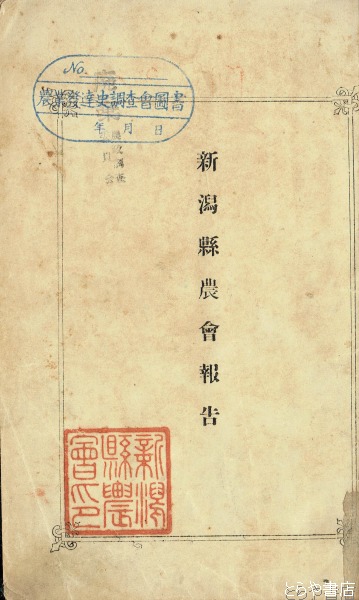 No.
農業發達史調査會圖書
年 月 日
新潟縣農會報告
新潟縣農會印
とらや書店